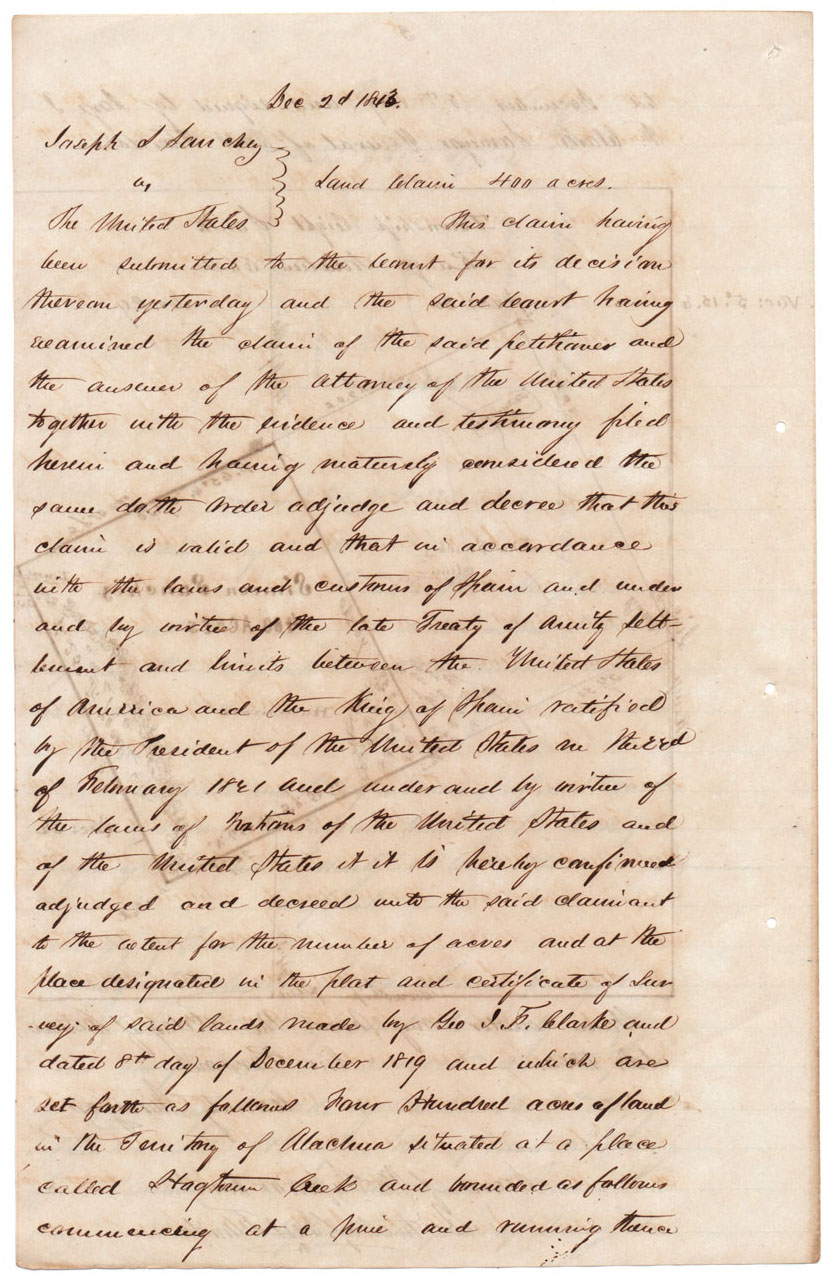 Dec 2d 1843.
Joseph S Sanchez
vs
Land Claim 400 acres.
The United States This claim having
been submitted to the Court for its decision
thereon yesterday and the said Court having
examined the claim of the said petitioner and
the answer of the Attorney of the United States
together with the evidence and testimony filed
herein and having maturely considered the
same doth order adjudge and decree that this
claim is valid and that in accordance
with the laws and customs of Spain and under
and by virtue of the late Treaty of Amity Sett-
lement and limits between the United States
of America and the King of Spain ratified
by the President of the United States on the 22d
of February 1821 and under and by virtue of
the laws of Nations of the United States and
of the United States it it is hereby confirmed
adjudged and decreed unto the said claimant
to the extent for the number of acres and at the
place designated in the plat and certificate of Sur
-vey of said lands made by Geo J. F. Clarke and
dated 8th day of December 1819 and which are
set forth as follows Four Hundred acres of land
in the Territory of Alachua situated at a place
called Hogtown Creek and bounded as follows
commencing at a pine and running thence